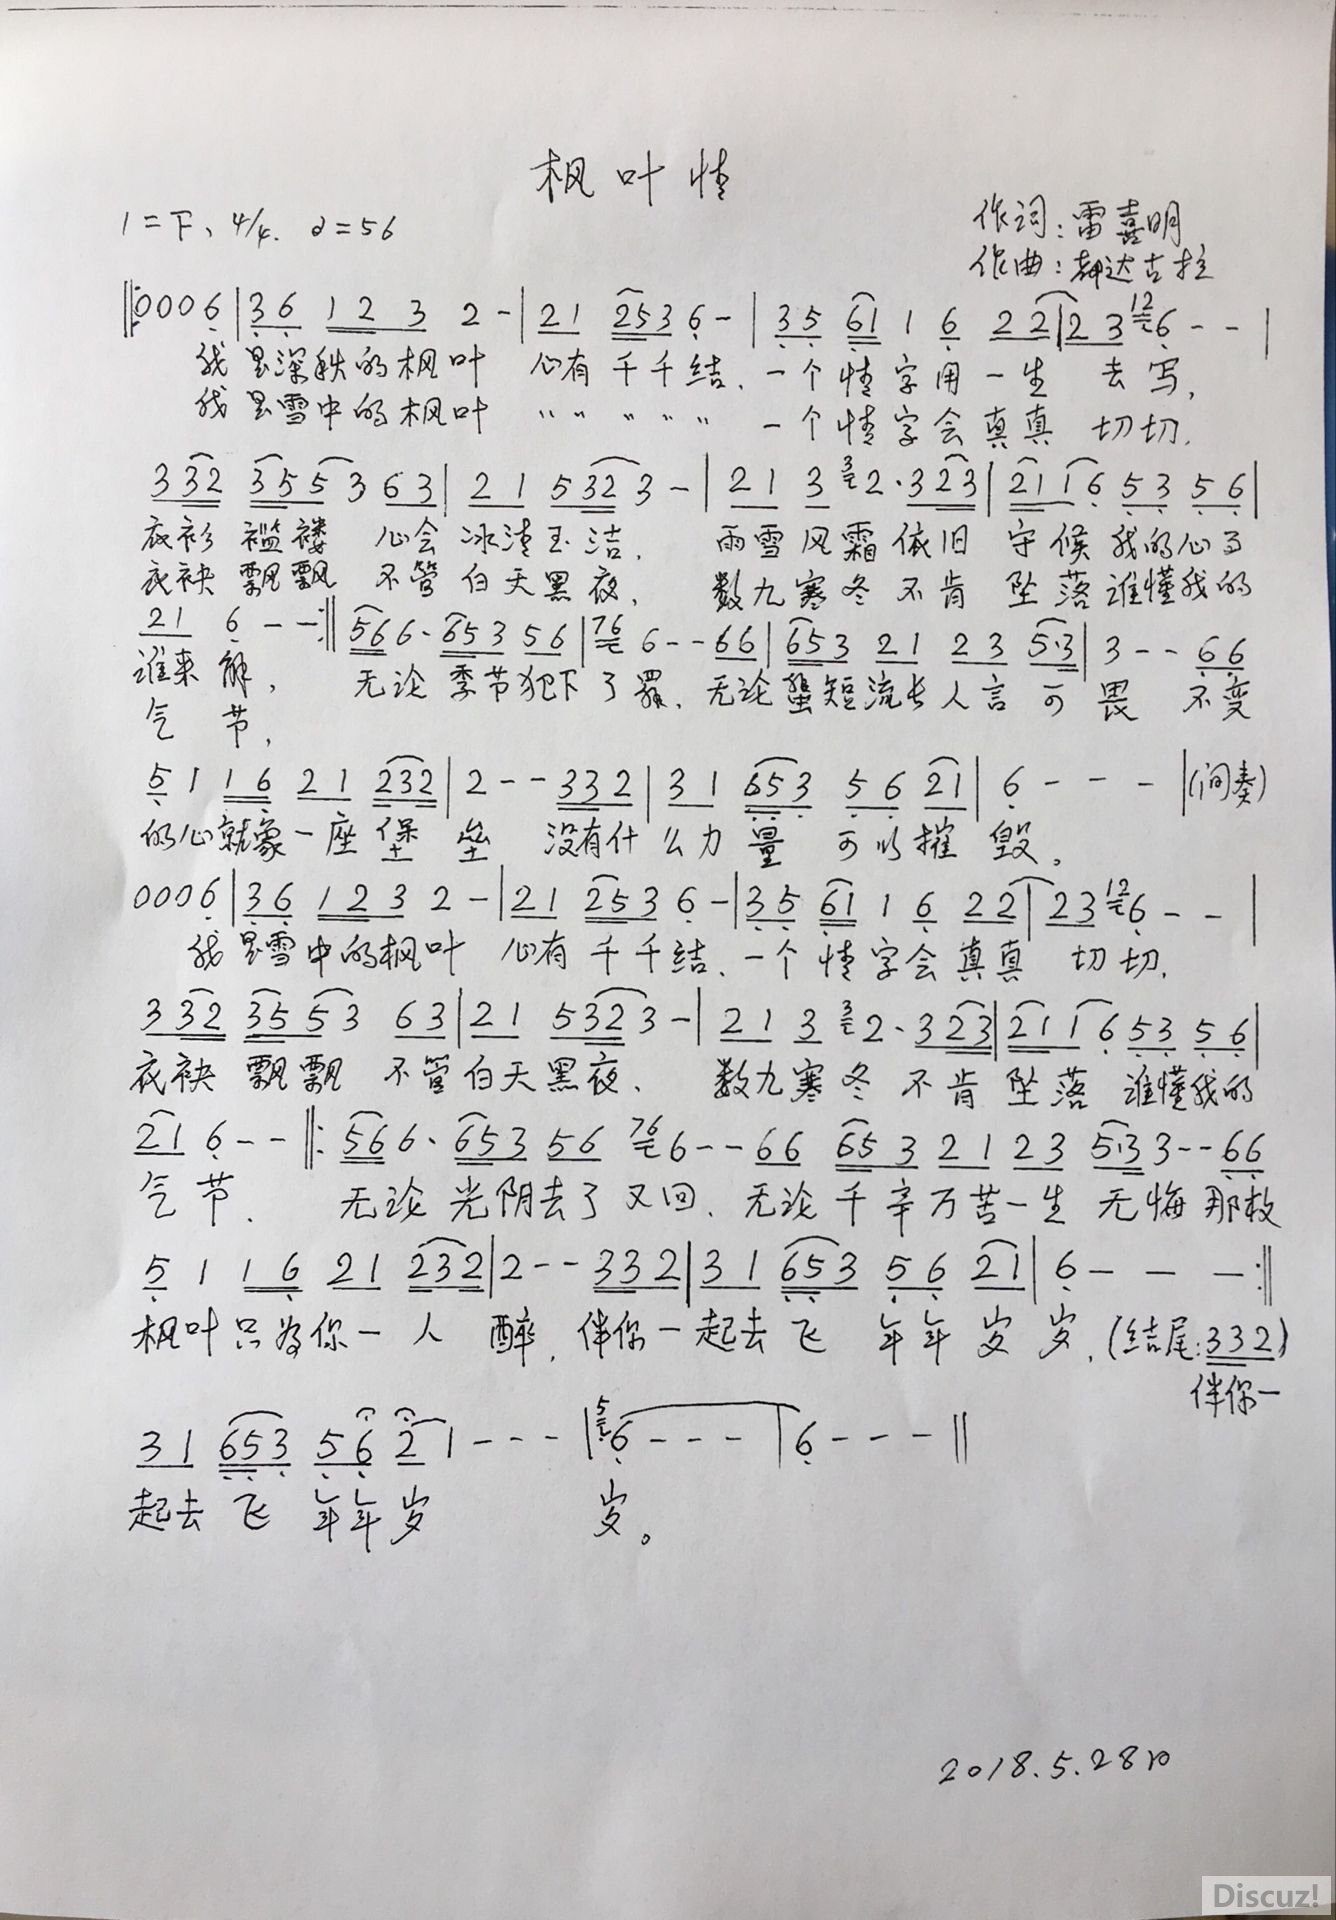 枫叶情
1=F、4/4. ♩=56
作词:雷喜明
作曲:郝达古拉
‖:0006|36 123 2-|21 253 6-|35 61 1 6 22|23 126--|
我是深秋的枫叶 心有千千结、一个情字用一生 去写,
我是雪中的枫叶 〃〃 〃 〃 〃 一个情字会真真 切切.
332 3553 63|21 5323-|21 3 32·323|2116 53 56|
衣衫 褴褛 心会 冰清玉洁, 雨雪风霜依旧 守候我的心了
衣袂 飘飘 不管 白天黑夜, 数九寒冬不肯 坠落谁懂我的
21 6--:‖566·653 56|76 6--66|653 21 23 5·3|3--66
谁来 解, 无论 季节犯下了罪、无论蜚短流长人言可畏 不变
气 节,
5 1 16 21 232|2--332|31 653 56 21|6---|(间奏)
的心就象一座堡垒 没有什么力量 可以摧毁。
0006|36 123 2-|21 253 6-|35 61 1 6 22|23 126--|
我是雪中的枫叶 心有千千结、一个情字会真真 切切,
332 3553 63|21 5323-|21 3 32·323|2116 53 56|
衣袂 飘飘 不管白天黑夜、 数九寒冬 不肯坠落 谁懂我的
21 6--‖:566·653 56 76 6--66 653 21 23 5·3 3--66
气节. 无论 光阴去了又回、无论千辛万苦一生 无悔那枚
5 1 16 21 232|2--332|31 653 56 21|6---:‖
枫叶只为你一人 醉,伴你一起去飞 年年岁岁,(结尾:332)
伴你一
31 653 56 21---|56---|6---‖
起去飞 年年岁 岁。
2018.5.28日
Discuz!